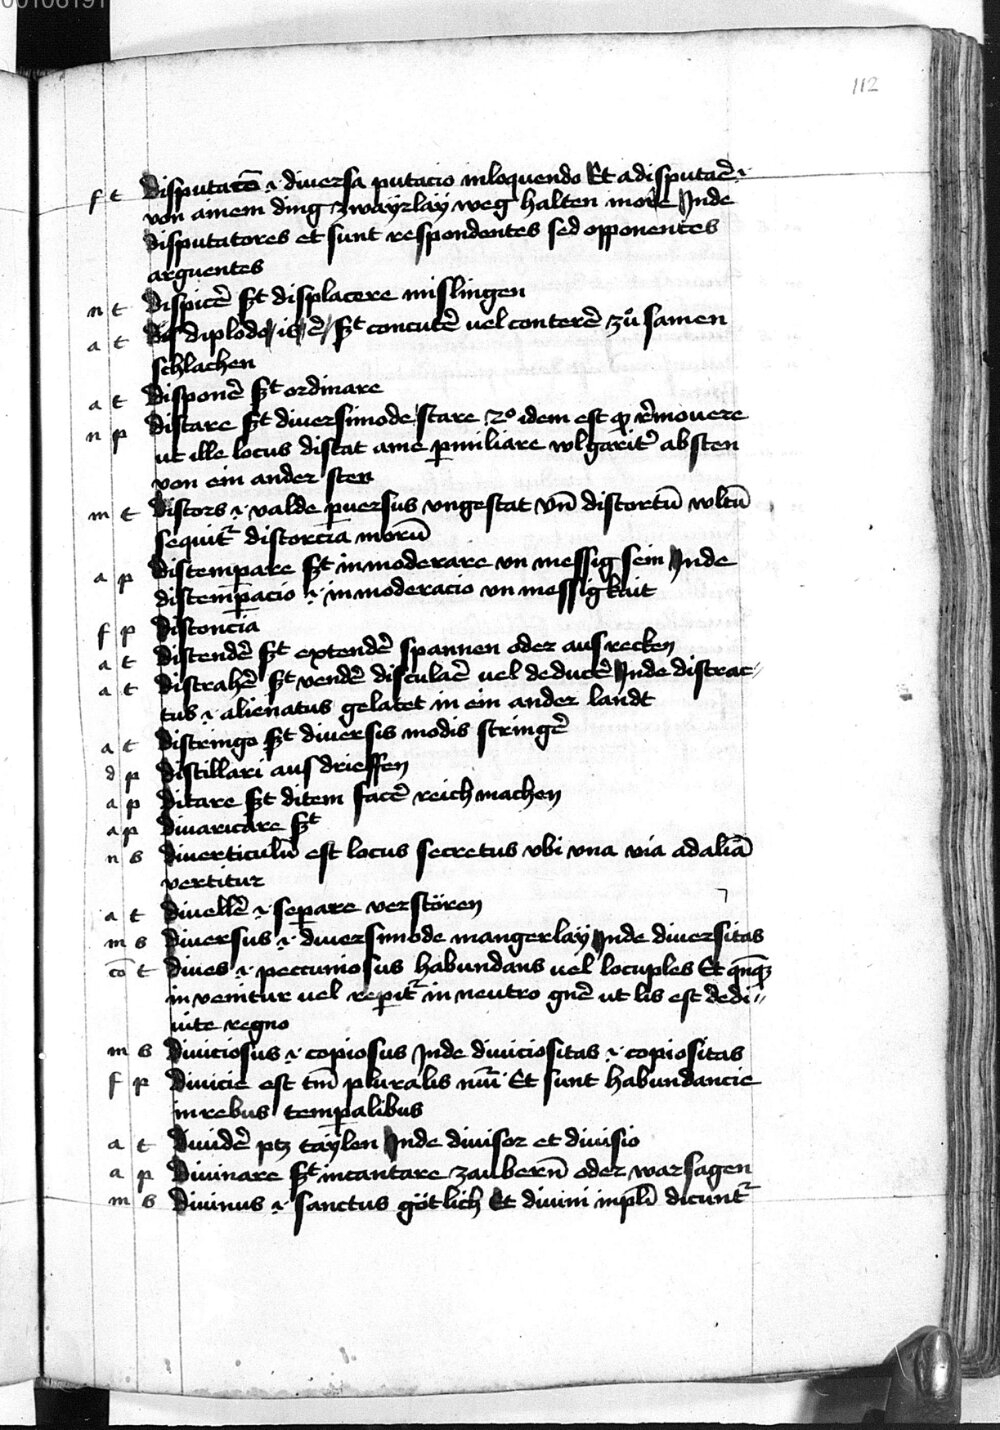 00106191
112
f t Disputacō ·i· diuersa putacio inloquendo Et a disputarē ·i·
von ainem ding zwayrlay weg halten Inde
disputatores et sunt respondentes sed opponentes
arguentes
n t Displicēr S̄t displacere mislingen
a t diplodo is ēr S̄t concutēr uel conterēr zů samen
schlachen
a t Disponēr S̄t ordinare
n p Distare S̄t diuersimode stare 2o idem est qp rēmouere
ut ille locus distat a me p miliare wlgaritēr absten
von ein ander sten
m t Distors ·i· valde puersus vngestat Vn̄ distortū wltū
sequit᷑ distorcia morū
a p Distempare S̄t inmoderare vn messig sein Inde
distempacio ·i· inmoderacio vn messigkait
f p Distoncia
a t Distendēr S̄t extendēr spannen oder aus recken
a t Distrahēr S̄t vendēr uel deducēr Inde distrac-
tus ·i· alienatus gelaitet in ein ander landt
a t Distringo S̄t diuersis modis stringēr
d p distillari aus drieffen
a p Ditare S̄t ditem facēr reich machen
a p Diuaricare S̄t
n s Diuerticulū est locus secretus vbi vna via ad aliā
vertitur
a t Diuellēr ·i· separe verstören
m s Diuersus ·i· diuersimode mangerlay Inde diuersitas
cō t Diues ·i· peccuniosus habundans uel locuples Et qn̄qz
inuenitur uel repit᷑ in neutro gn̄e ut lis est de di-
uite regno
m s Diuiciosus ·i· copiosus Inde diuiciositas ·i· copiositas
f p Diuicie est tm̄ pluralis nūi Et sunt habundancie
in rebus tempalibus
a t Diuidēr ptz taylen Inde diuisor et diuisio
a p Diuinare S̄t incantare zaubern̄ oder warsagen
m s Diuinus ·i· sanctus götlich Et diuini inplī dicunt᷑